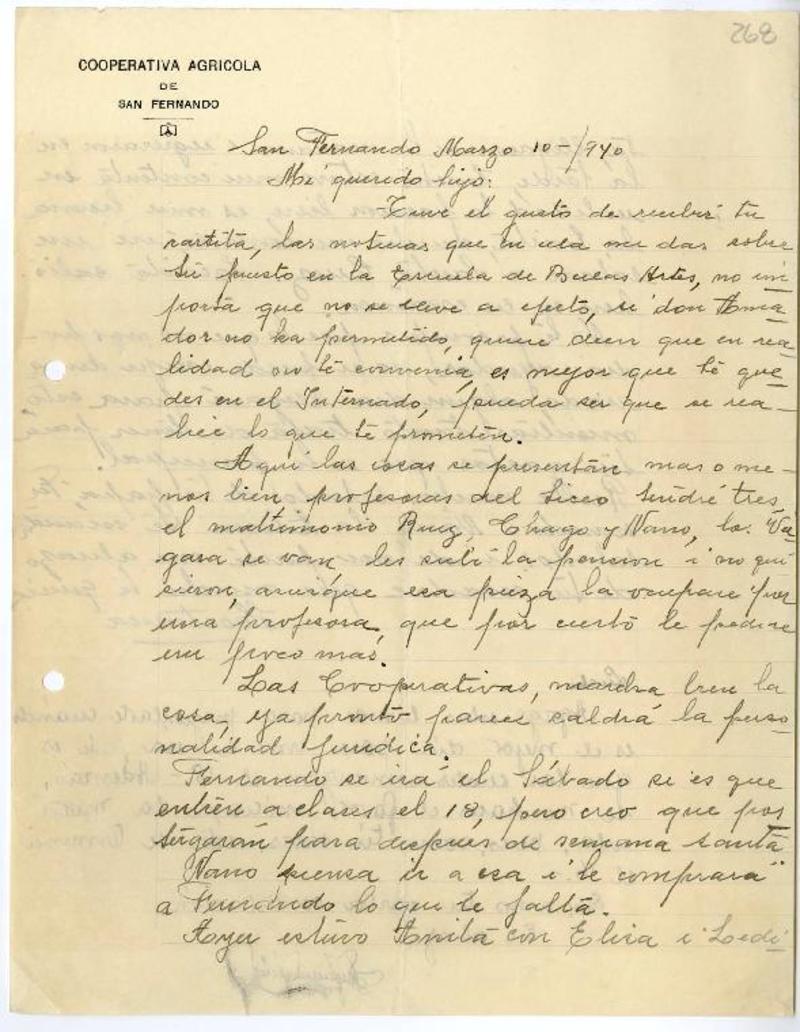 268
COOPERATIVA AGRICOLA
DE
SAN FERNANDO
San Fernando Marzo 10-/940
Mi querido hijo:
Tuve el gusto de recibir tu
cartita, las noticias que en ella me das sobre
tu puesto en la Escuela de Bellas Artes, no im
porta que no se lleve a efecto, si don Ama
dor no ha permitido, quiere decir que en rea
lidad no te convenia, es mejor que te que
des en el Internado, pueda ser que se rea-
lice lo que te prometen.
Aqui las cosas se presentan mas o me-
nos bien profesoras del Liceo tendré tres,
el matrimonio Ruiz, Chago y Nano, la
se van, les subi la pension i no qui
sieron, aunque esa pieza la ocupare por
una profesora, que por cierto le pedire
un poco mas.
Las Cooperativas, marcha bien la
cosa, ya pronto parece saldrá la perso-
nalidad Juridica.
Fernando se irá el Sábado si es que
entren a clases el 18, pero creo que pos
tergarán para despues de semana santa
Nano piensa ir a esa i le comprará
a Fernando lo que le falta.
Ayer estuvo Anita con Elisa i Ledi